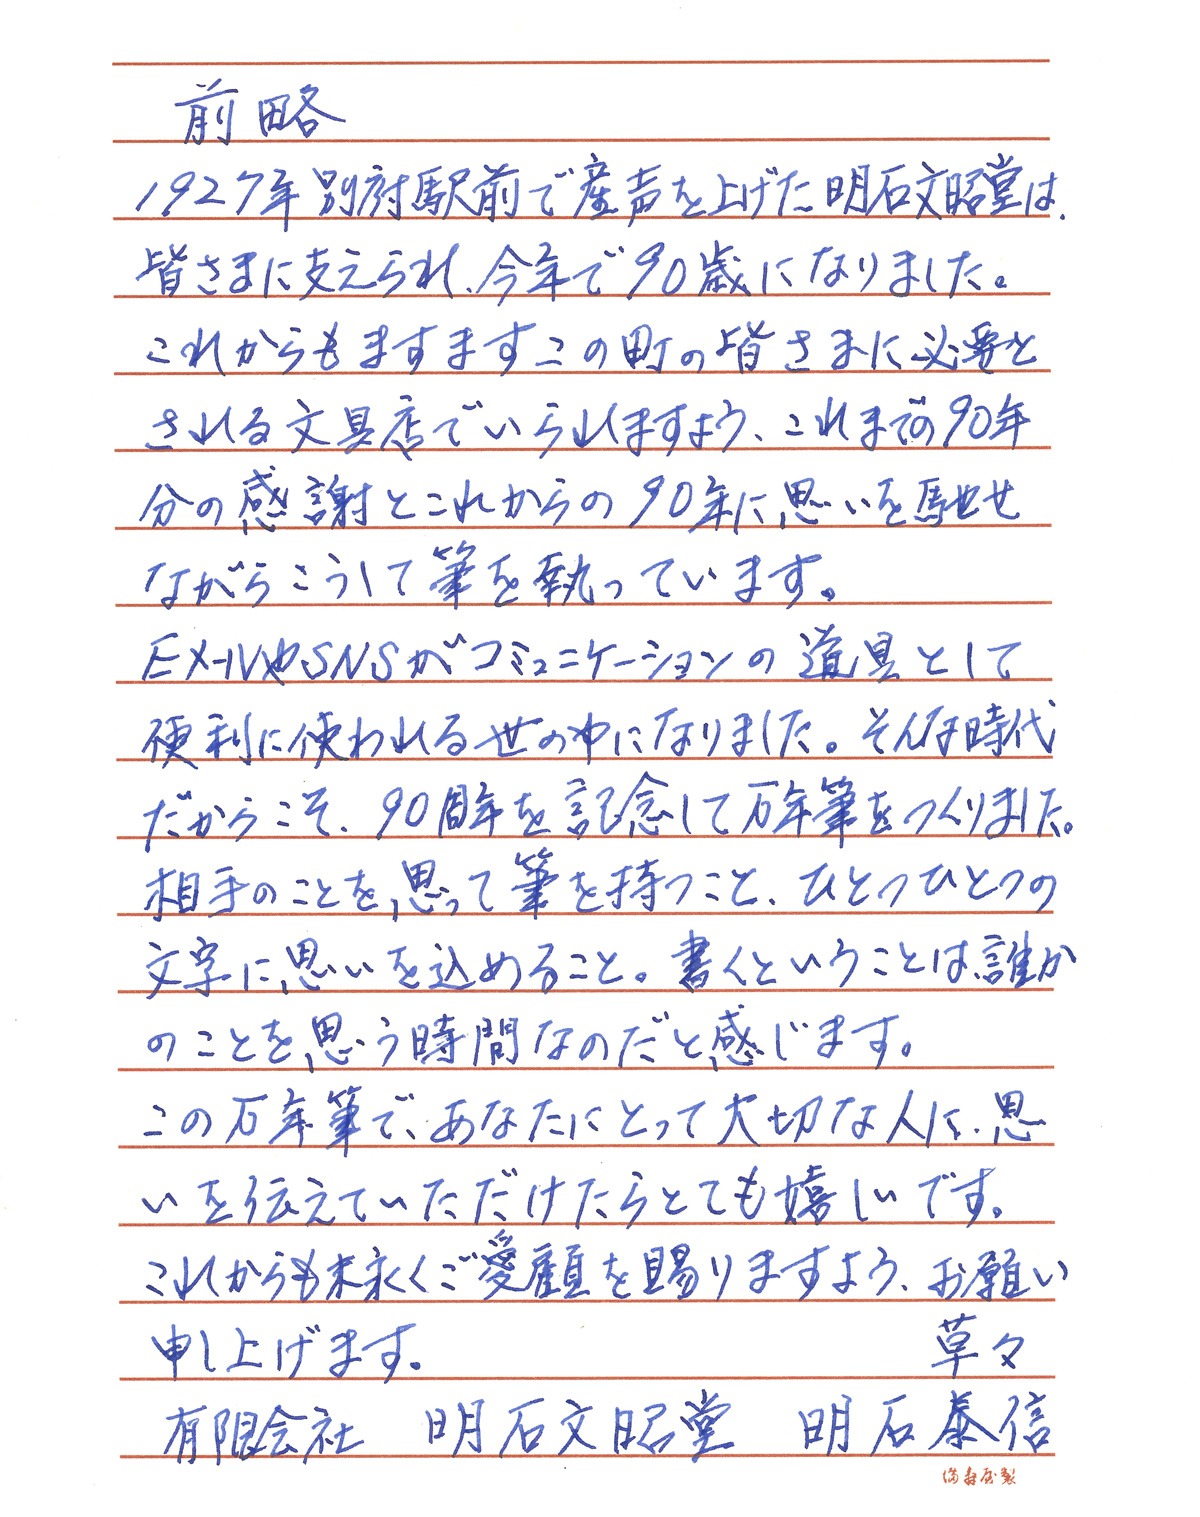 前略
1927年別府駅前で産声を上げた明石文昭堂は、
皆さまに支えられ、今年で90歳になりました。
これからもますますこの町の皆さまに必要と
される文具店でいられますよう、これまでの90年
分の感謝とこれからの90年に思いを馳せ
ながらこうして筆を執っています。
EメールやSNSがコミュニケーションの道具として
便利に使われる世の中になりました。そんな時代
だからこそ、90周年を記念して万年筆をつくりました。
相手のことを思って筆を持つこと、ひとつひとつの
文字に思いを込めること。書くということは誰か
のことを思う時間なのだと感じます。
この万年筆で、あなたにとって大切な人に、思
いを伝えていただけたらとても嬉しいです。
これからも末永くご愛顧を賜りますよう、お願い
申し上げます。 草々
有限会社 明石文昭堂 明石泰信
満寿屋製